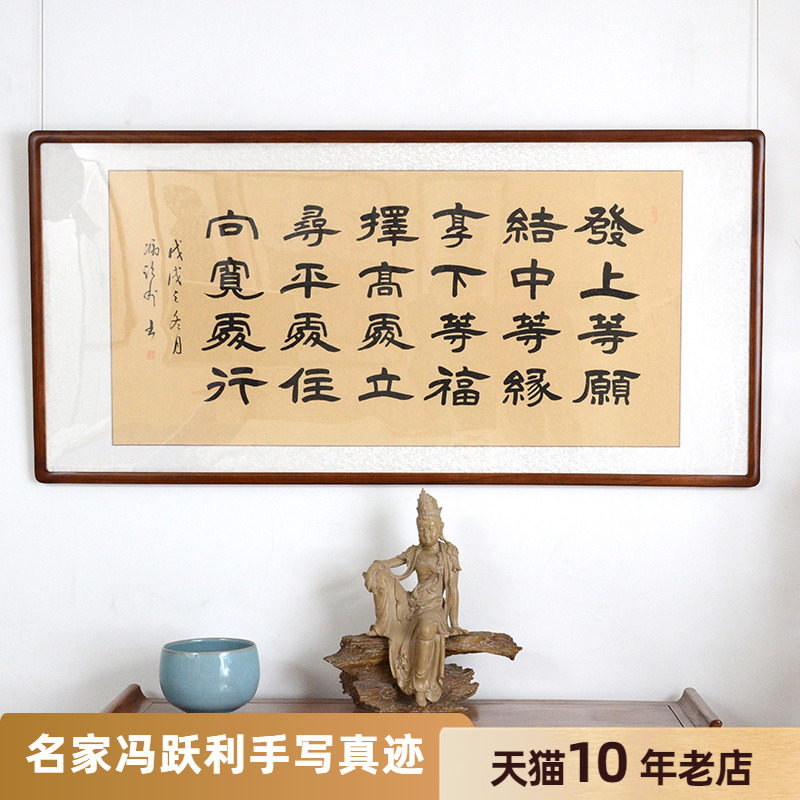 發上等願
結中等緣
享下等福
擇高處立
尋平處住
向寬處行
戊戌之冬月
馮跃利书
名家冯跃利手写真迹
天猫10年老店